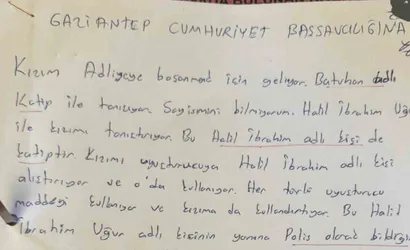 GAZİANTEP CUMHURİYET BASSAVCILIĞINA
Kızım Adliyeye boşanmak için geliyor. Batuhan adlı
Katip ile tanışıyor. Soyismini bilmiyorum. Halil İbrahim Uğu
ile kızımı tanıştırıyor. Bu Halil İbrahim adlı kişi de
katiptir. Kızımı uyuşturucuya Halil İbrahim adlı kişi
alıştırıyor ve o'da kullanıyor. Her türlü uyuşturucu
maddeyi kullanıyor ve kızıma da kullandırtıyor. Bu Halil
İbrahim Uğur adlı kişinin yanına Polis olarak bildiğim